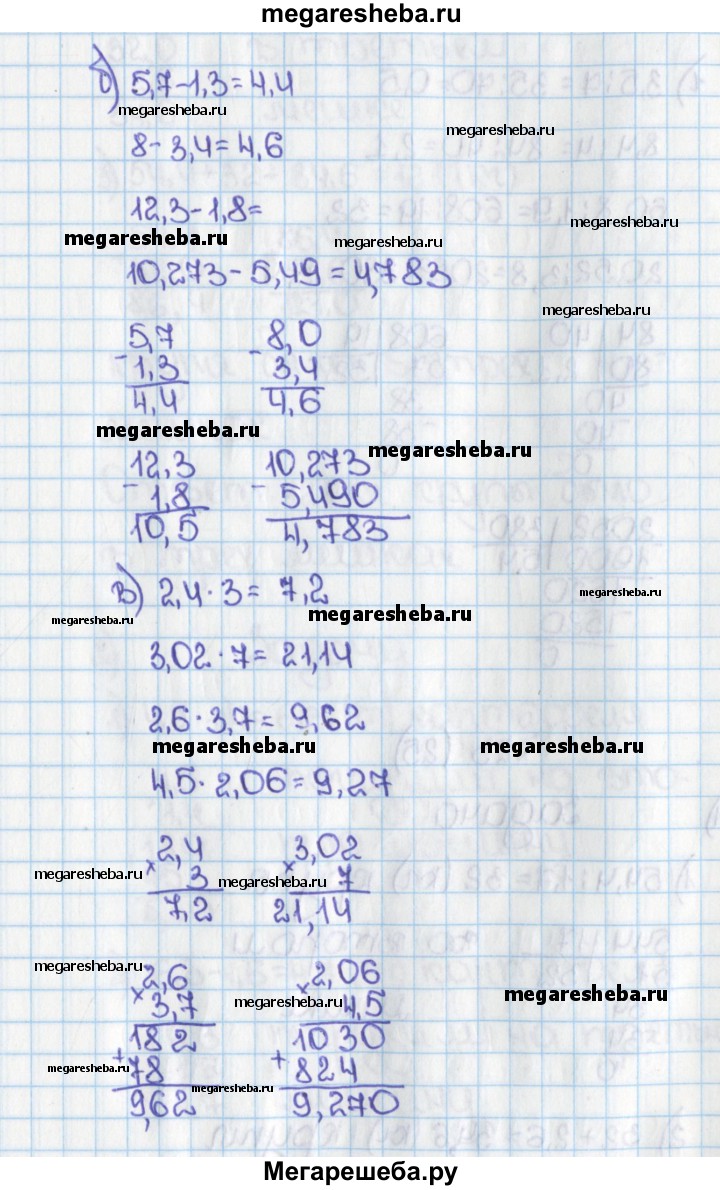 megaresheba.ru
б) 5,7-1,3=4,4
megaresheba.ru
megaresheba.ru
8-3,4=4,6
12,3-1,8=
megaresheba.ru
megaresheba.ru
megaresheba.ru
10,273-5,49=4,783
megaresheba.ru
5,7 8,0
- 1,3 - 3,4
4,4 4,6
megaresheba.ru
megaresheba.ru
12,3 10,273
- 1,8 - 5,490
10,5 4,783
в) 2,4·3=7,2
megaresheba.ru
megaresheba.ru
megaresheba.ru
3,02·7=21,14
2,6·3,7=9,62
megaresheba.ru megaresheba.ru
4,5·2,06=9,27
2,4 3,02
× 3 × 7
megaresheba.ru megaresheba.ru
7,2 21,14
megaresheba.ru
2,6 2,06
× 3,7 × 4,5
megaresheba.ru megaresheba.ru
182 1030
+ 78 + 824
megaresheba.ru megaresheba.ru
9,62 9,270
Мегарешеба.ру